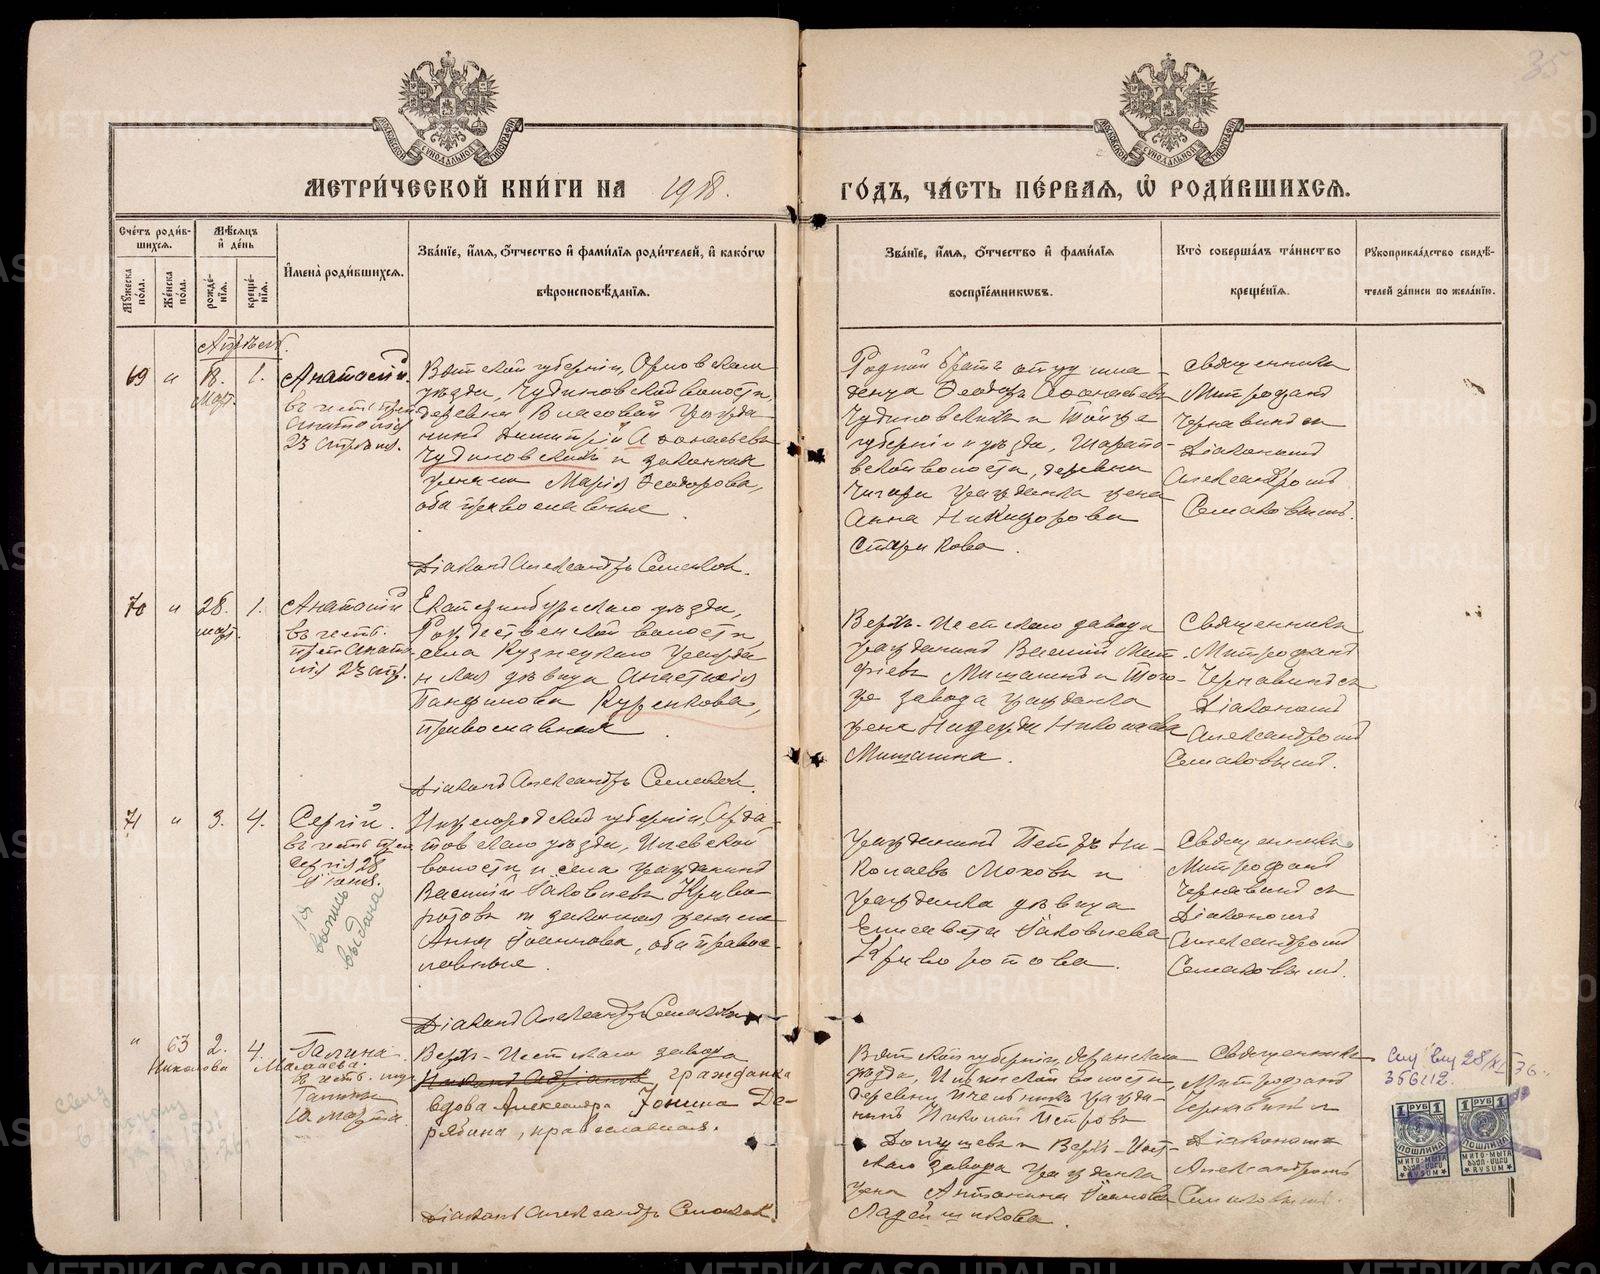 35
МЕТРИ́ЧЕСКОЙ КНИ́ГИ НА 1918.
ГО́ДЪ, ЧА́СТЬ ПЕ́РВАЯ, Ѡ РОДИ́ВШИХСЯ.
МОСКОВСКОЙ СѴНОДАЛЬНОЙ ТИПОГРАФІИ
МОСКОВСКОЙ СѴНОДАЛЬНОЙ ТИПОГРАФІИ
Сче́тъ роди́в-
шихся.
Му́жеска по́ла.
Же́нска по́ла.
Мѣ́сяцъ и де́нь
рожде́-нія.
креще́-нія.
Имена̀ роди́вшихся.
Зва́ніе, и́мя, о́тчество и фами́лія роди́телей, и како́гѡ
вѣроисповѣ́данія.
Зва́ніе, и́мя, о́тчество и фами́лія
воспріе́мниковъ.
Кто̀ соверша́лъ та́инство
креще́нія.
Рукоприкла́дство свидѣ́-
телей за́писи по жела́нію.
Апрѣль.
69 " 18. 1.
Март.
Анатолій.
въ честь преп.
Анатолія
23 апрѣля.
Вятской губерніи, Орловскаго
уѣзда, Чудиновской волости,
деревни Власовой гражда-
нинъ Димитрій Аѳонасьевъ
Чудиновскихъ и законная
жена его Марія Ѳеодорова,
оба православные
Діаконъ Александръ Семаковъ.
Родной братъ отцу мла-
денца Ѳеодоръ Аѳонасьевъ
Чудиновскихъ и той же
губерніи и уѣзда,
вской волости, деревни
гражданка жена
Анна Никифорова
Старикова.
Священникъ
Митрофанъ
Чернавинъ съ
Діакономъ
Александромъ
Семаковымъ.
70 " 28. 1.
март.
Анатолій
въ честь.
преп. Анато-
лія 23 апр.
Екатеринбургскаго уѣзда,
Рождественской волости,
села Кузнецкаго граждан-
ская дѣвица Анастасія
Панфилова Куренкова,
православная
Діаконъ Александръ Семаковъ.
Верхъ-Исетскаго завода
гражданинъ Василій Мит-
ріевъ Мишагинъ и того-
же завода гражданка
жена Надежда Николаева
Мишагина.
Священникъ
Митрофанъ
Чернавинъ съ
Діакономъ
Александромъ
Семаковымъ.
71 " 3. 4.
Сергій.
въ честь преп.
Сергія 28
Іюня.
1918
выпись
выдана
Нижегородской губерніи, Арда-
товскаго уѣзда, Илевской
волости и села гражданинъ
Василій Іаковлевъ Криво-
ротовъ и законная жена его
Анна Іоаннова, оба правос-
лавные.
Діаконъ Александръ Семаковъ
Гражданинъ Петръ Ни-
колаевъ Моховъ и
гражданка дѣвица
Елисавета Іаковлева
Криворотова.
Священникъ
Митрофанъ
Чернавинъ съ
Діакономъ
Александромъ
Семаковымъ.
" 63 2. 4.
Николаева
Галина
Малгаева.
въ честь. муч.
Галины
10 марта
Верхъ-Исетскаго завода
гражданка
вдова Александра Іонина Де-
рябина, православная.
Діаконъ Александръ Семаковъ.
Вятской губерніи, Яранскаго
уѣзда, волости,
деревни гражда-
нинъ Николай Петровъ
и Верхъ-Исет-
скаго завода гражданка
жена Антонина Іоаннова
Ладейщикова.
Священникъ
Митрофанъ
Чернавинъ и
Діакономъ
Александромъ
Семаковымъ.
28/XI 36.
356112.
1 РУБ 1
ПОШЛИНА
МИТО-МЫТА
RYSUM
1 РУБ 1
ПОШЛИНА
МИТО-МЫТА
RYSUM
METRIKI.GASO-URAL.RU